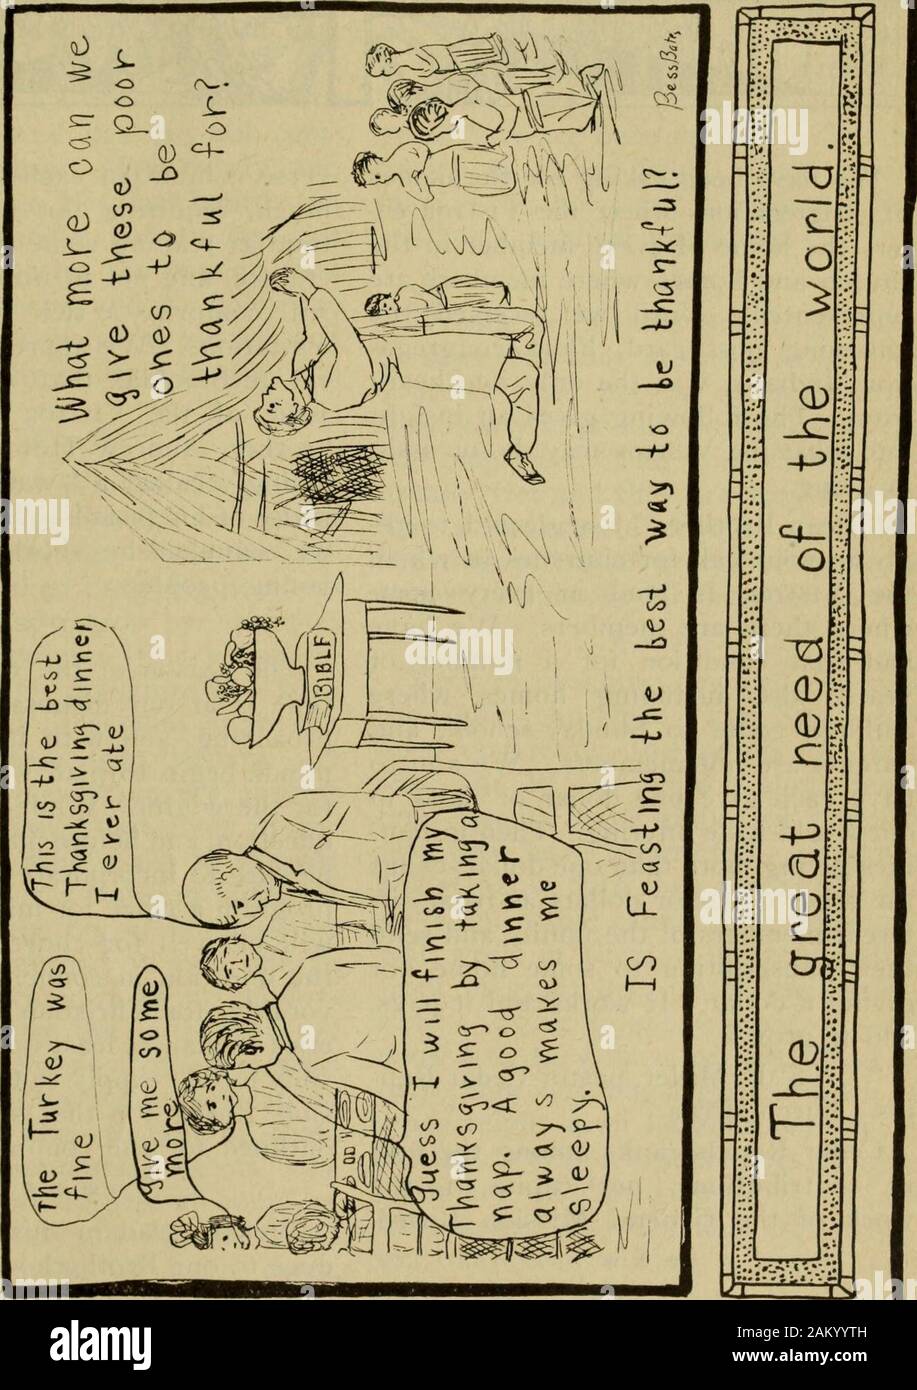 The Turkey was
fine
Give me some
more
This is the best
Thanksgiving dinner
I ever ate
Guess I will finish my
Thanksgiving by taking a
nap. A good dinner
always makes me
sleepy.
BIBLE
What more can we
give these poor
ones to be
thankful for?
Bess Bates
IS Feasting the best way to be thankful?
The great need of the world.
alamy
Image ID: 2AKYYTH
www.alamy.com